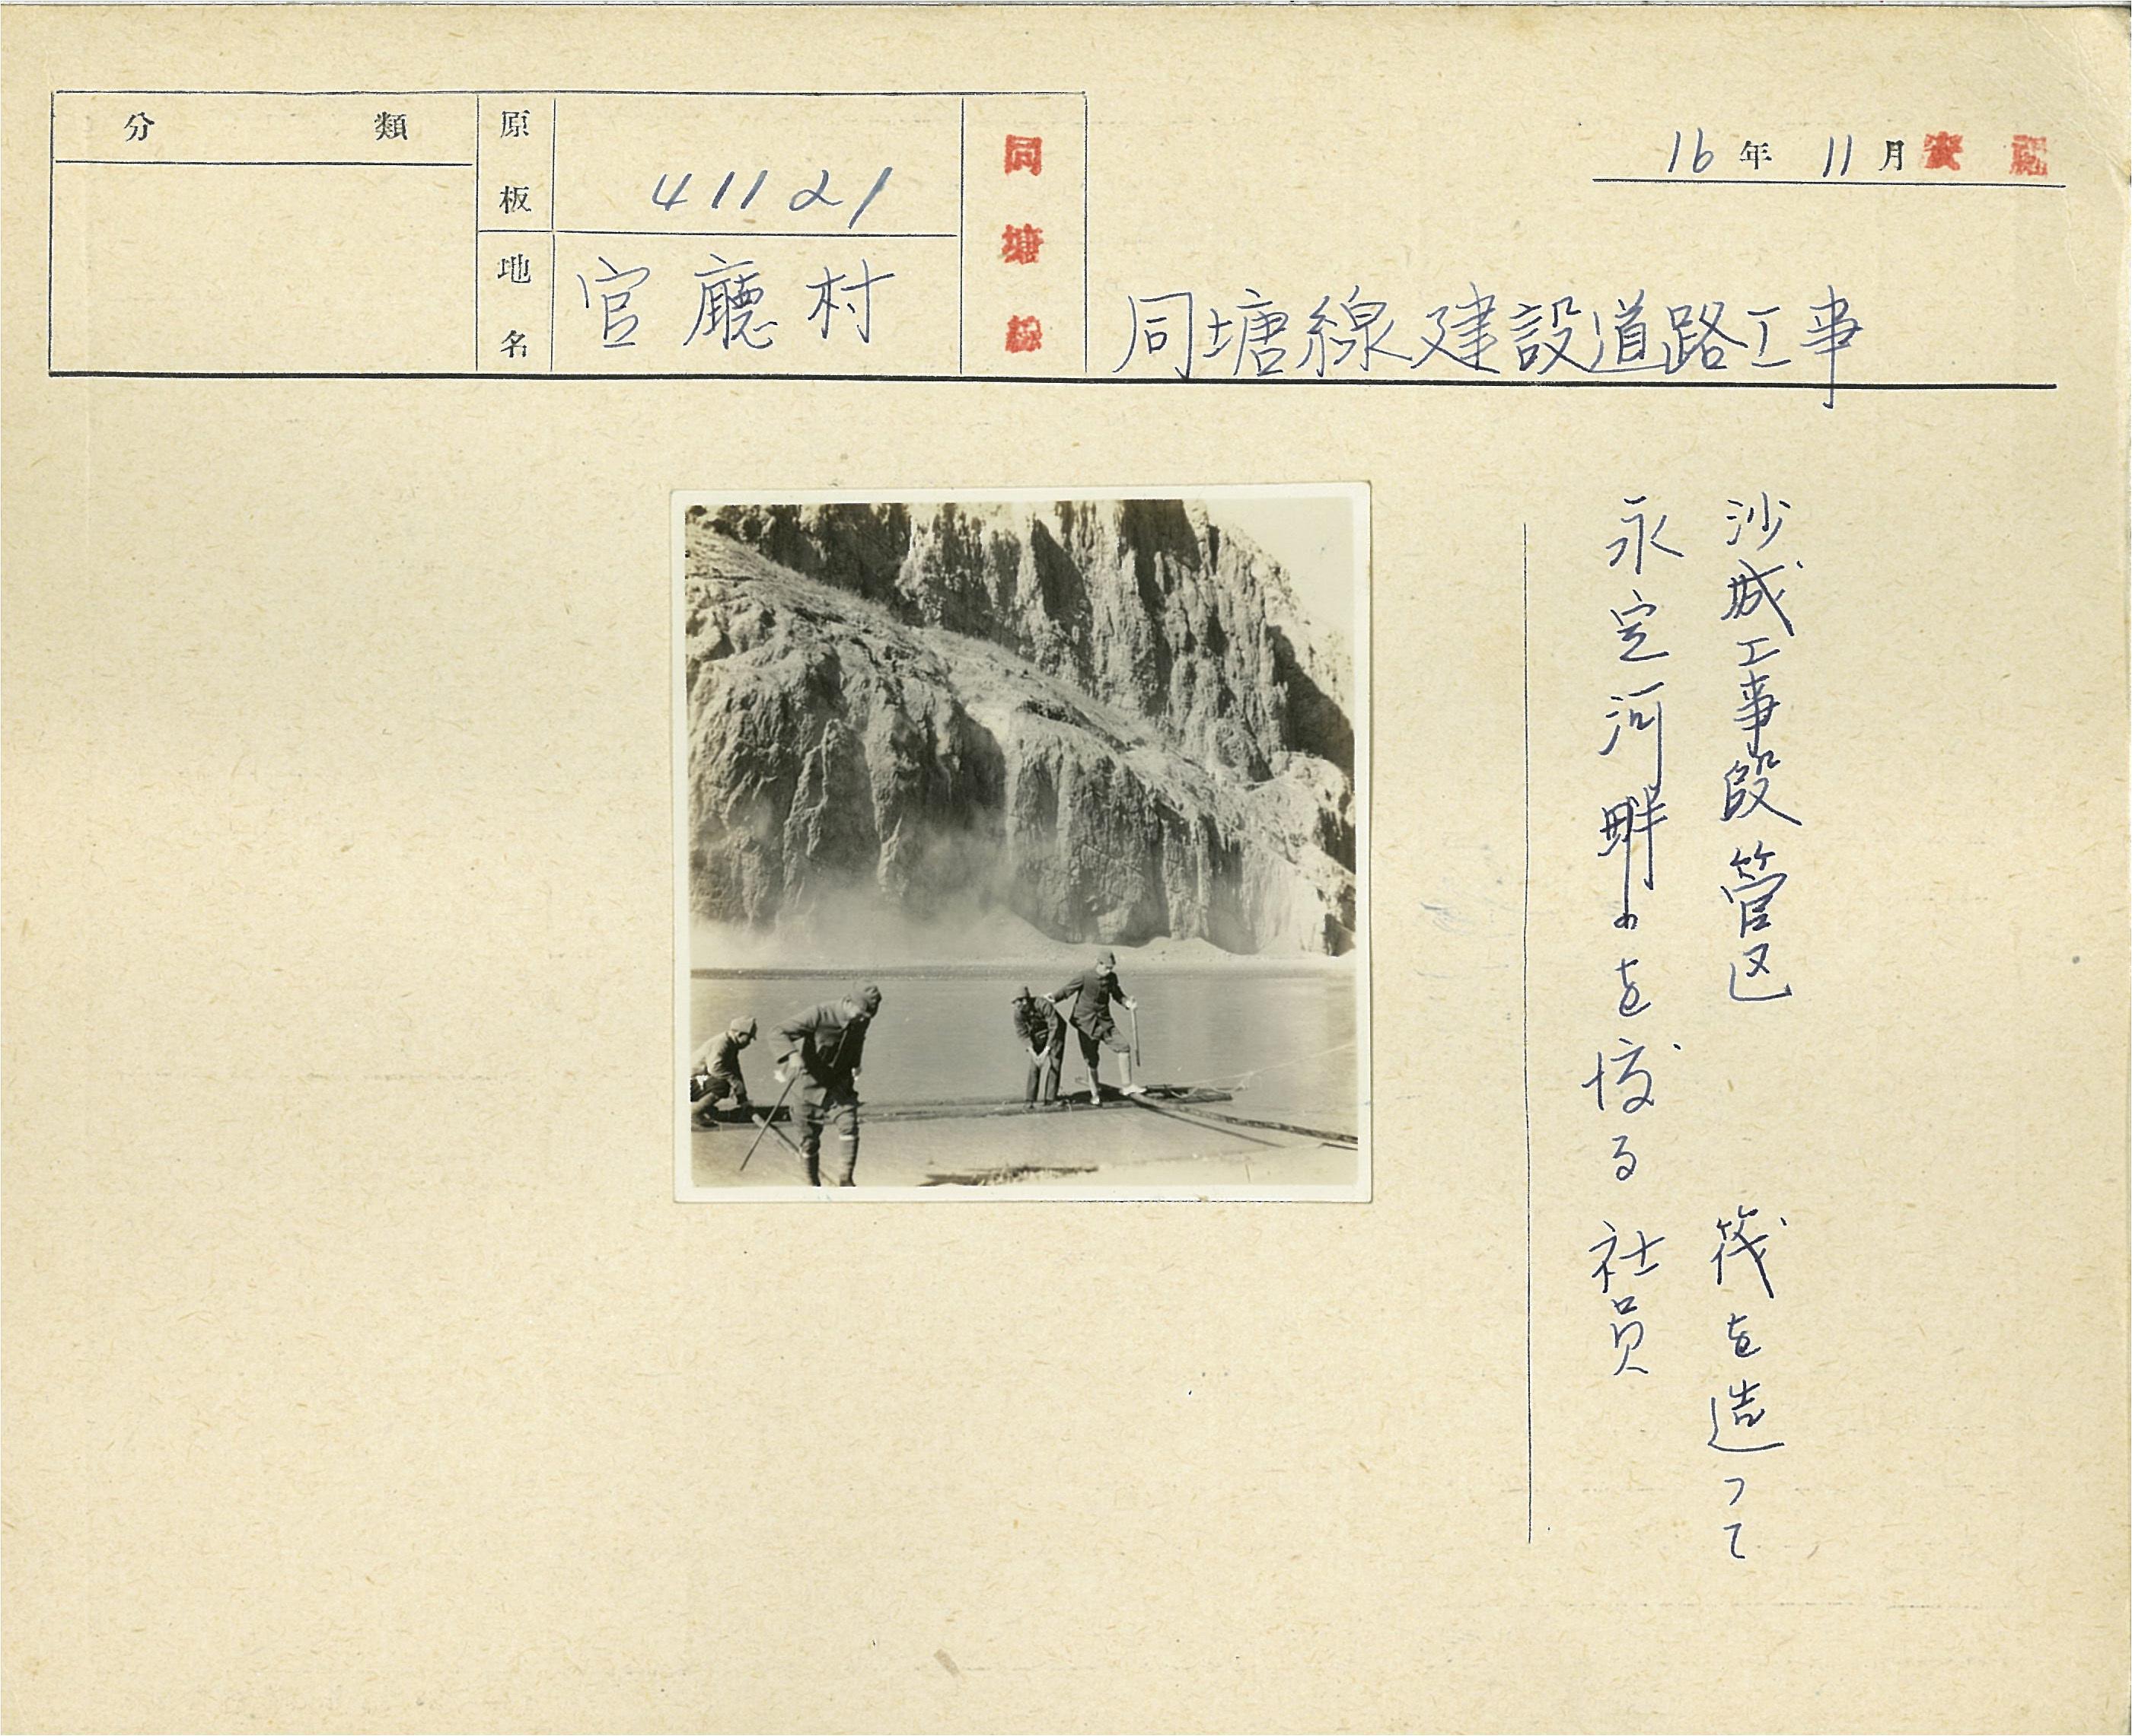 分類
原板
41121
地名
官廳村
同塘線
16年 11月
同塘線建設道路工事
沙城工事段管区 筏を造って
永定河畔を渡る 社員